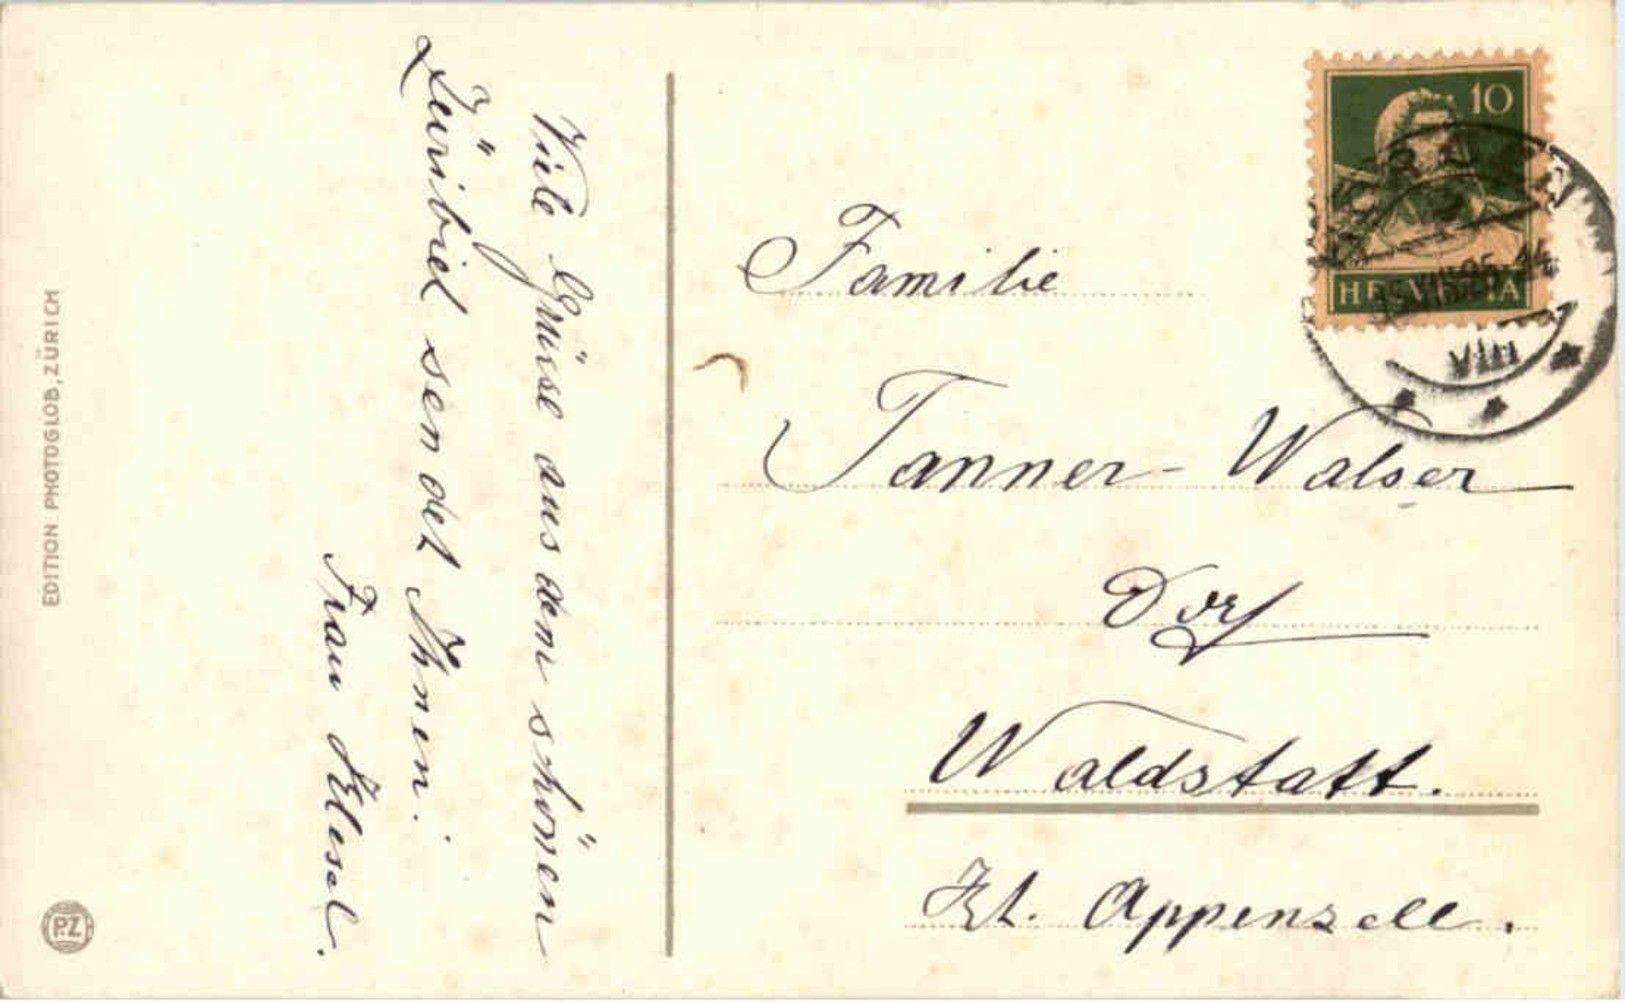 Viele Grüsse aus dem schönen
Züribiet sendet Ihnen:
Frau
Familie
Tanner-Walser
Dorf
Waldstatt.
Kt. Appenzell.
10
HELVETIA
VIII
EDITION PHOTOGLOB, ZÜRICH
P.Z